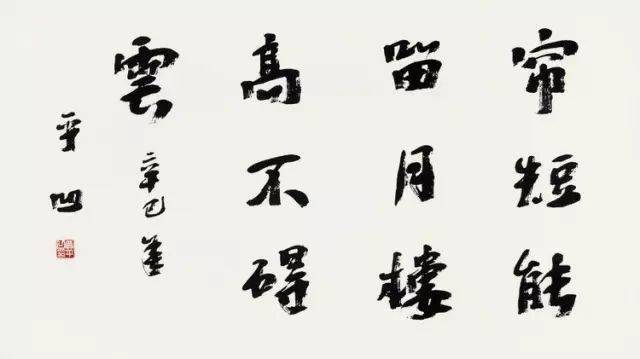 帘短能
留月樓
高不礙
雲
辛巳 
平凹